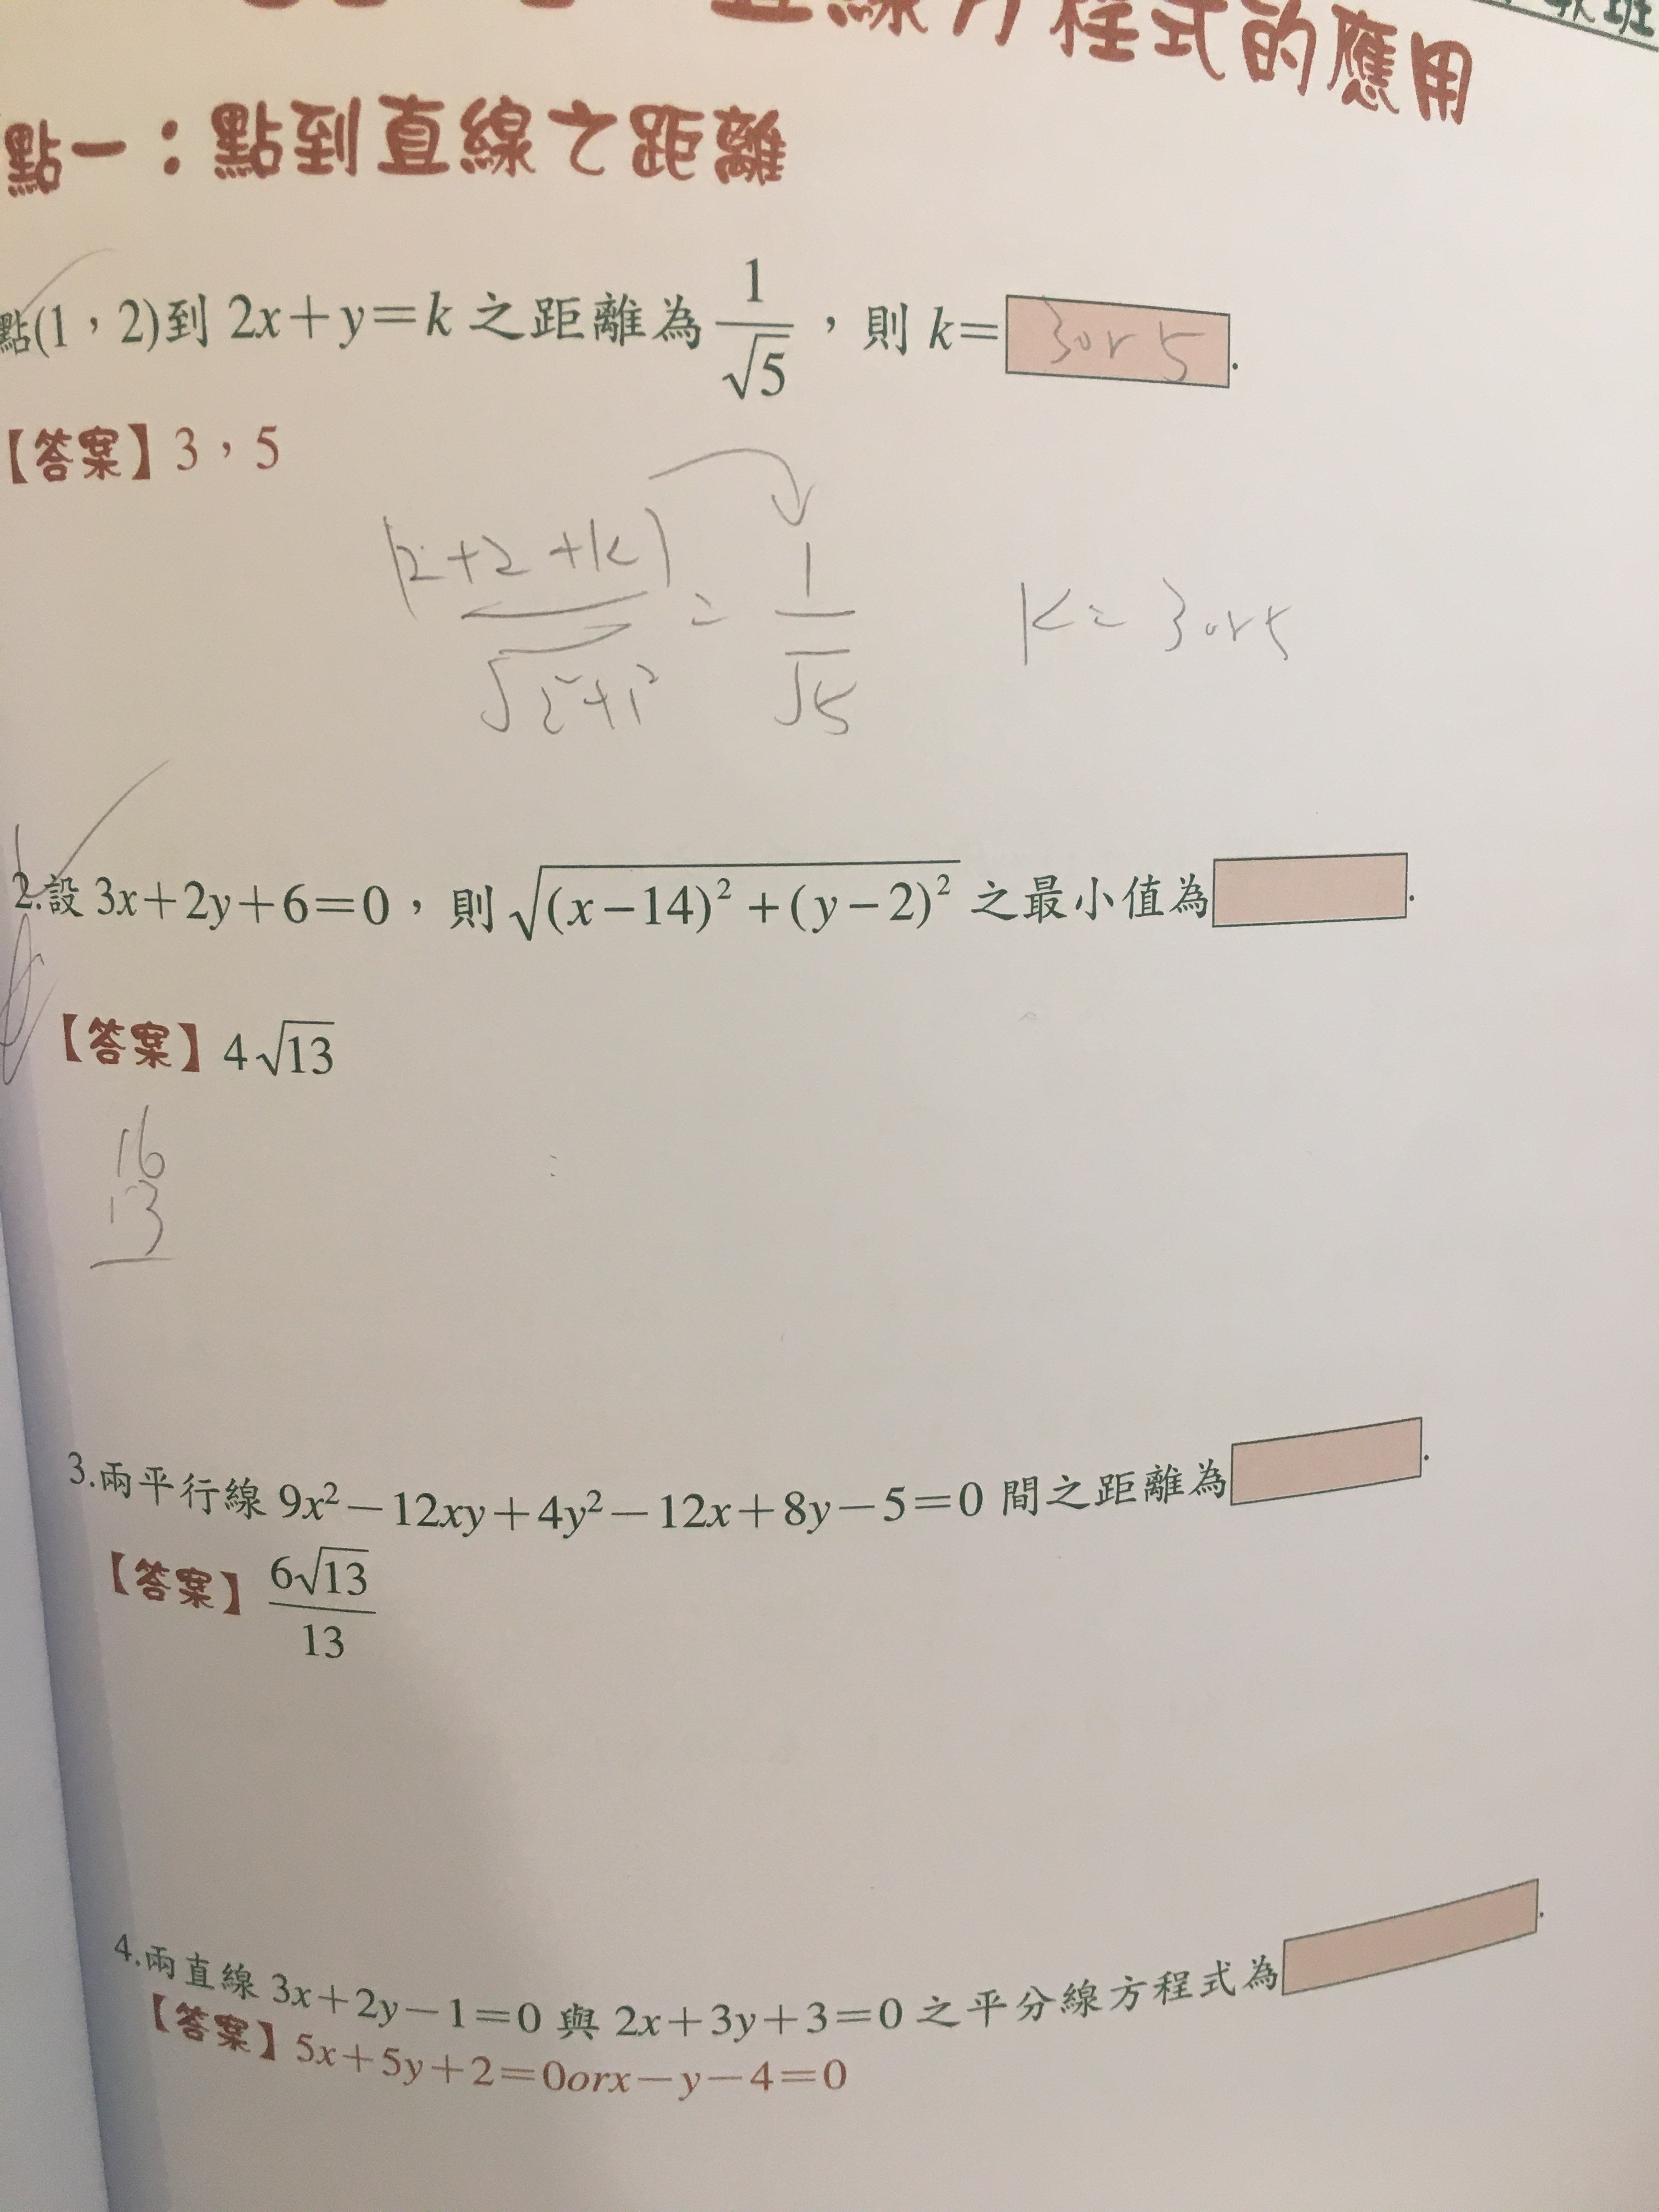 直線方程式的應用
點一：點到直線之距離
點(1，2)到 2x+y=k 之距離為 1/√5，則 k= 3 or 5 .
【答案】3，5
|2+2+k| / √2²+1² = 1/√5   k= 3 or 5
2.設 3x+2y+6=0，則 √(x-14)²+(y-2)² 之最小值為 .
【答案】4√13
16
13
3.兩平行線 9x²-12xy+4y²-12x+8y-5=0 間之距離為 .
【答案】6√13/13
4.兩直線 3x+2y-1=0 與 2x+3y+3=0 之平分線方程式為 .
【答案】5x+5y+2=0orx-y-4=0